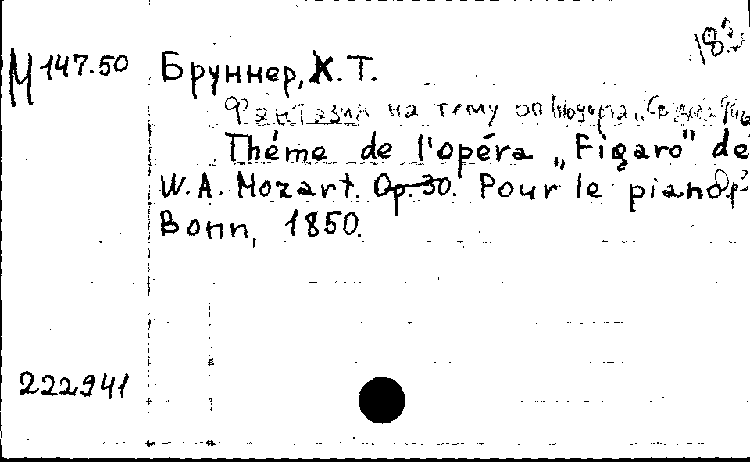 М 147.50 Бруннер, К. Т.
Фантазия на тему оп. Моцарта
Théme de l'opéra „Figaro" de
W. A. Mozart. Op. 30. Pour le piano
Bonn, 1850.
222941